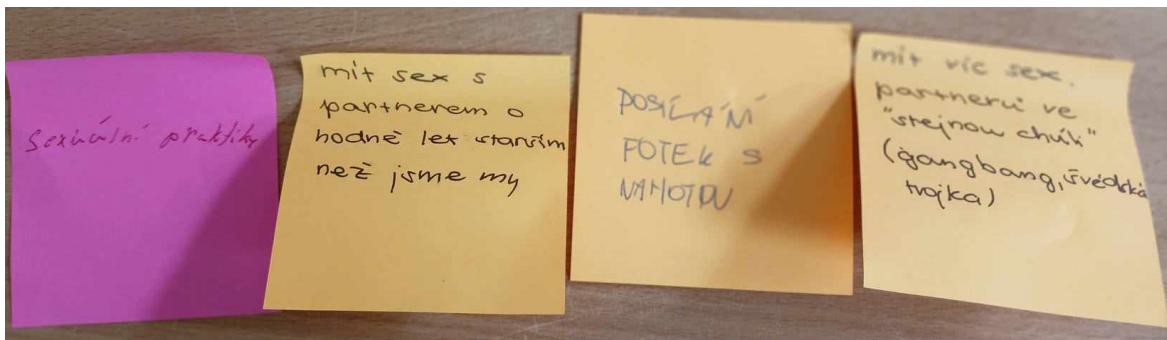 sexuální praktiky
mít sex s
partnerem o
hodně let starším
než jsme my
POSÍLÁNÍ
FOTEK S
NAHOTOU
mít víc sex.
partnerů ve
"stejnou chvíli"
(gangbang, švédská
trojka)